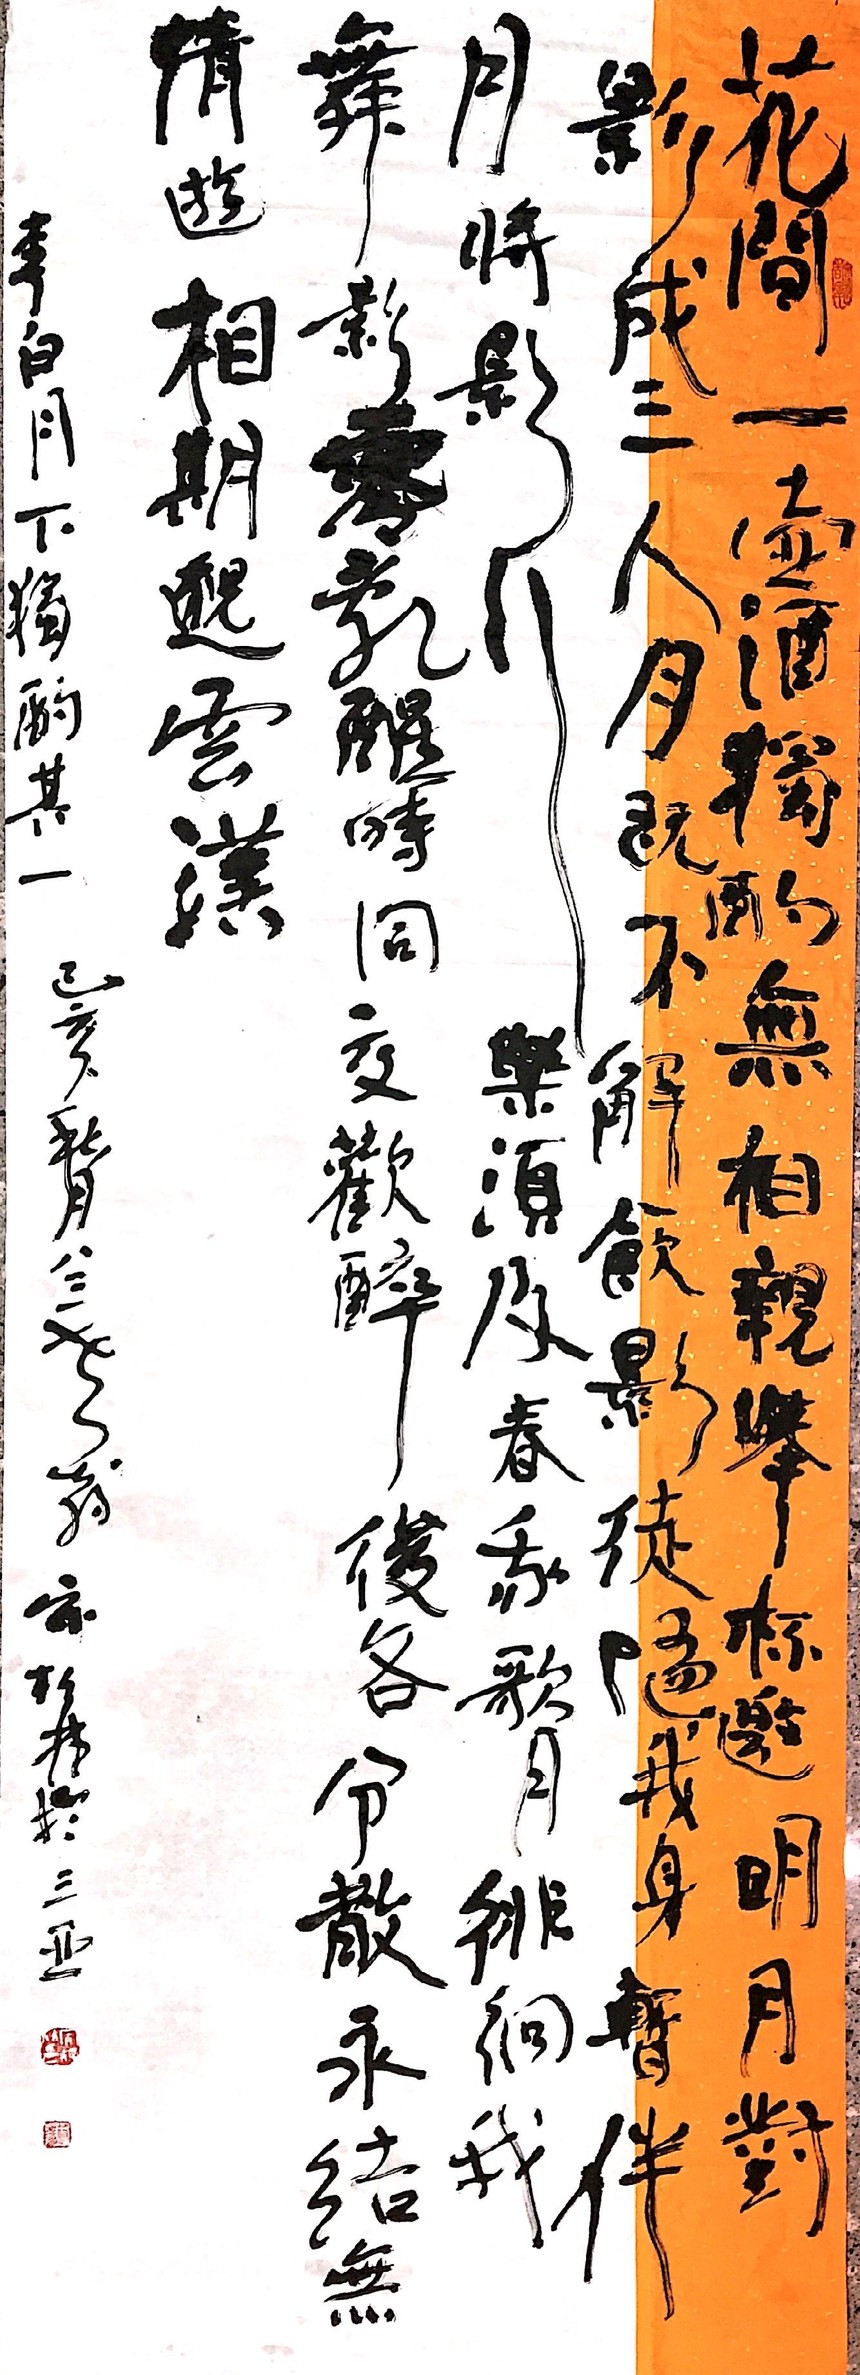 花間一壺酒獨酌無相親舉杯邀明月對
影成三人月既不解飲影徒隨我身暫伴
月將影行樂須及春我歌月徘徊我
舞影零亂醒時同交歡醉後各分散永結無
情遊相期邈雲漢
李白月下獨酌其一 己亥 月八三 翁 於三亞